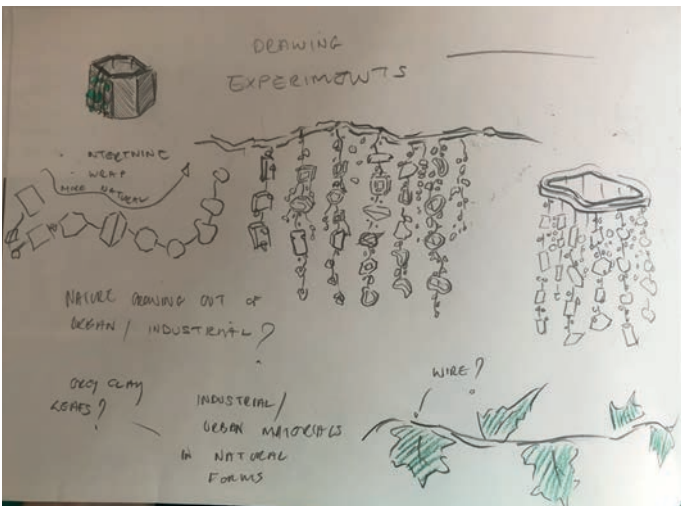 DRAWING
EXPERIMENTS
INTERTWINE
WRAP
MORE NATURAL
NATURE GROWING OUT OF
URBAN / INDUSTRIAL?
GREY CLAY
LEAFS?
INDUSTRIAL/
URBAN MATERIALS
IN NATURAL
FORMS
WIRE?